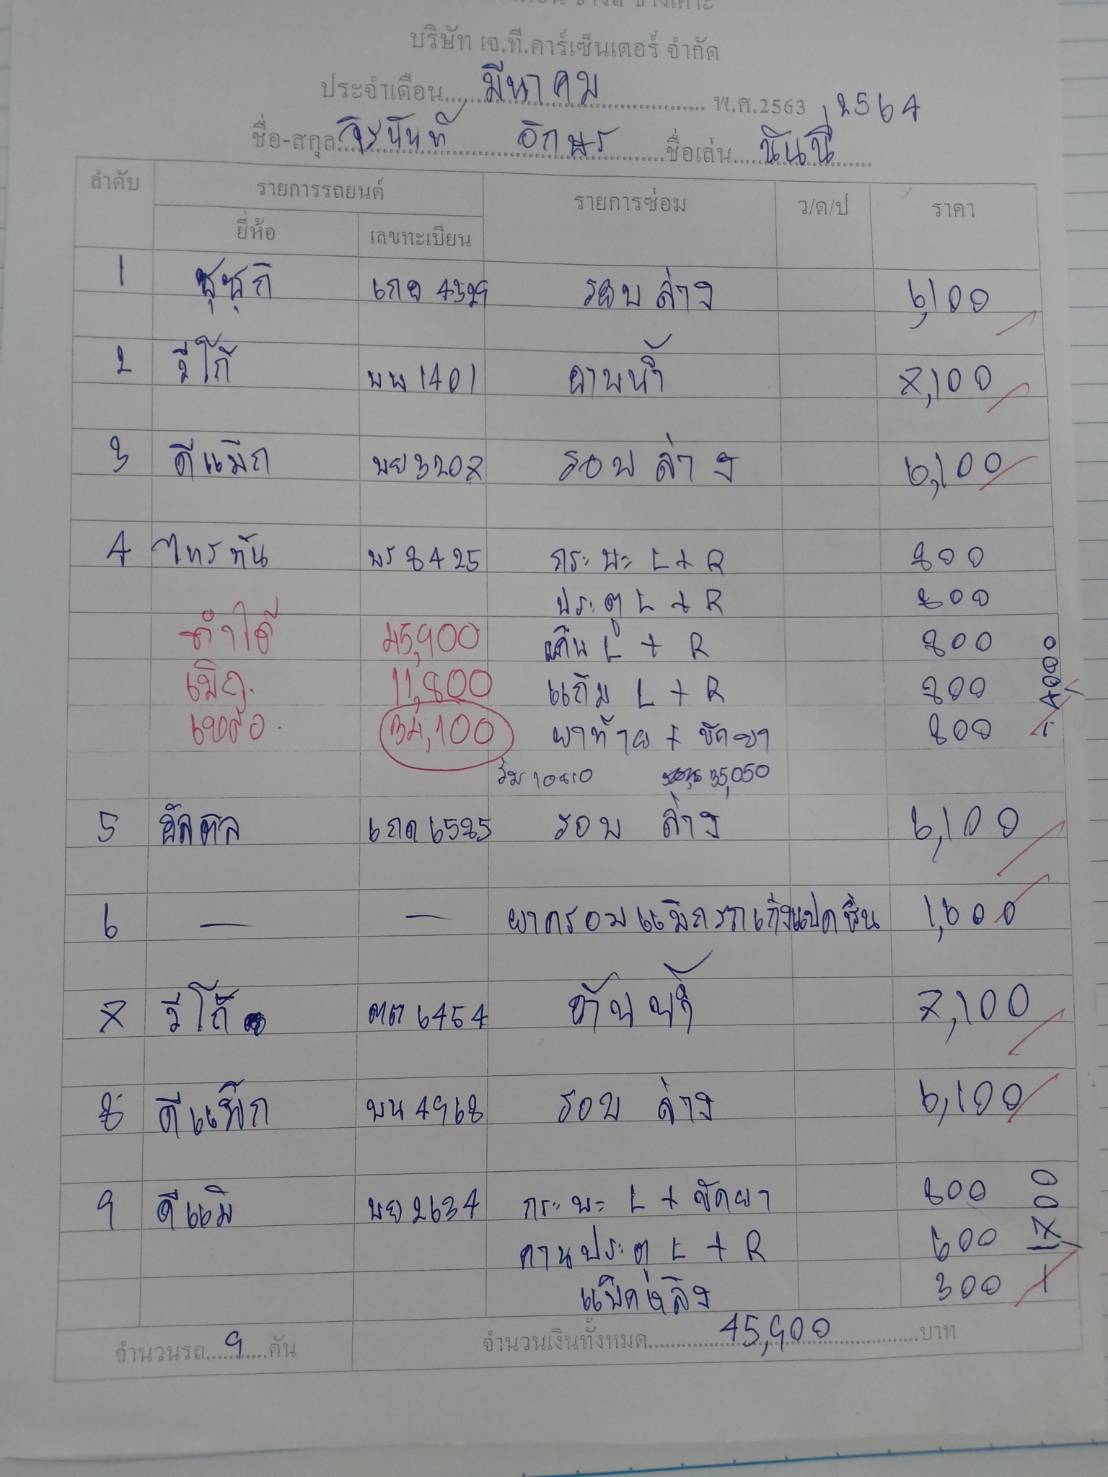 บริษัท เจ.ที.คาร์เซ็นเตอร์ จำกัด
ประจำเดือน.....มีนาคม..... พ.ศ.2563 2564
ชื่อ-สกุล.....จิรนันท์ อักษร.....ชื่อเล่น.....นันนี่.....
ลำดับ รายการรถยนต์ รายการซ่อม ว/ด/ป ราคา
ยี่ห้อ เลขทะเบียน
1 ซุซุกิ 4329 รอบล่าง 6,100
2 วีโก้ 1401 คานน้ำ 7,100
3 ดีแม็ก 3207 รอบล่าง 6,100
4 ไทรทัน 8425 กระบะ L + R 800
ประตู L + R 800
ทำได้ 45,900 L + R 800
เบิก. 11,800 แก้ม L + R 800 4000
เหลือ. 34,100 ฝาท้าย + ขัดยา 800
35,050
5 6585 รอบ ล่าง 6,100
6 — — 1,600
7 วีโก้ 6454 7,100
8 ดีแม็ก บน 4968 รอบ ล่าง 6,100
9 ดีแม็ 2634 กระบะ L + ขัดยา 800
คานประตู L + R 600 1700
300
จำนวนรถ.....9.....คัน จำนวนเงินทั้งหมด.....45,900.....บาท